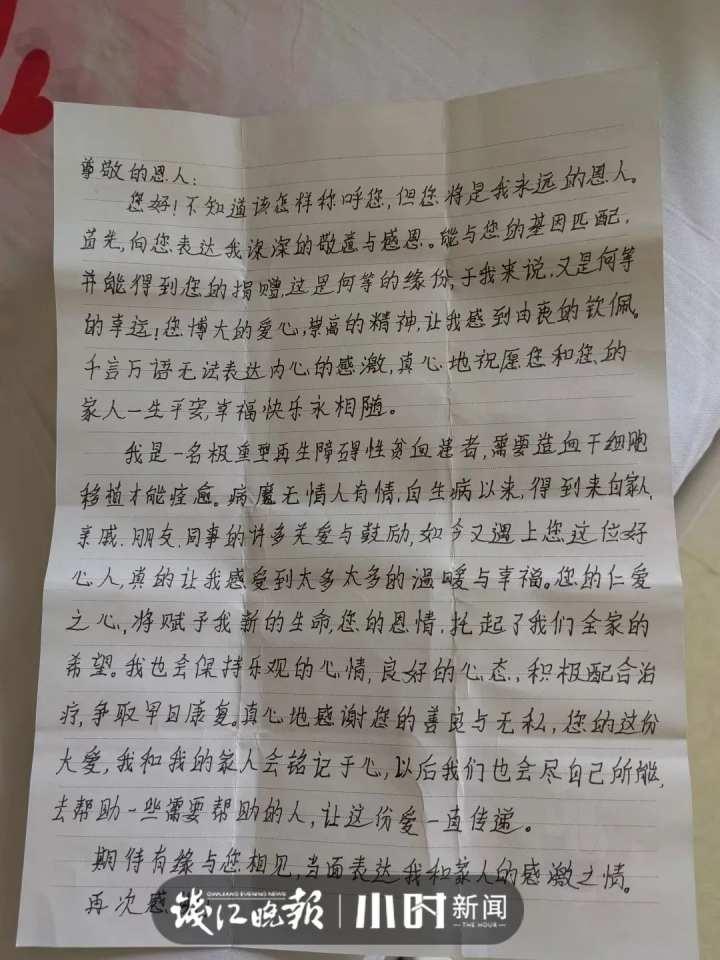 尊敬的恩人：
您好！不知道该怎样称呼您，但您将是我永远的恩人。
首先，向您表达我深深的敬意与感恩。能与您的基因匹配，
并能得到您的捐赠，这是何等的缘份，于我来说，又是何等
的幸运！您博大的爱心，崇高的精神，让我感到由衷的钦佩。
千言万语无法表达内心的感激，真心地祝愿您和您的
家人一生平安，幸福快乐永相随。
我是一名极重型再生障碍性贫血患者，需要造血干细胞
移植才能痊愈。病魔无情人有情，自生病以来，得到来自家人、
亲戚、朋友、同事的许多关爱与鼓励，如今又遇上您这位好
心人，真的让我感受到太多太多的温暖与幸福。您的仁爱
之心，将赋予我新的生命，您的恩情，托起了我们全家的
希望。我也会保持乐观的心情，良好的心态，积极配合治
疗，争取早日康复。真心地感谢您的善良与无私，您的这份
大爱，我和我的家人会铭记于心，以后我们也会尽自己所能，
去帮助一些需要帮助的人，让这份爱一直传递。
期待有缘与您相见，当面表达我和家人的感激之情。
再次感
QIANJIANG EVENING NEWS
钱江晚报 小时新闻
THE HOUR